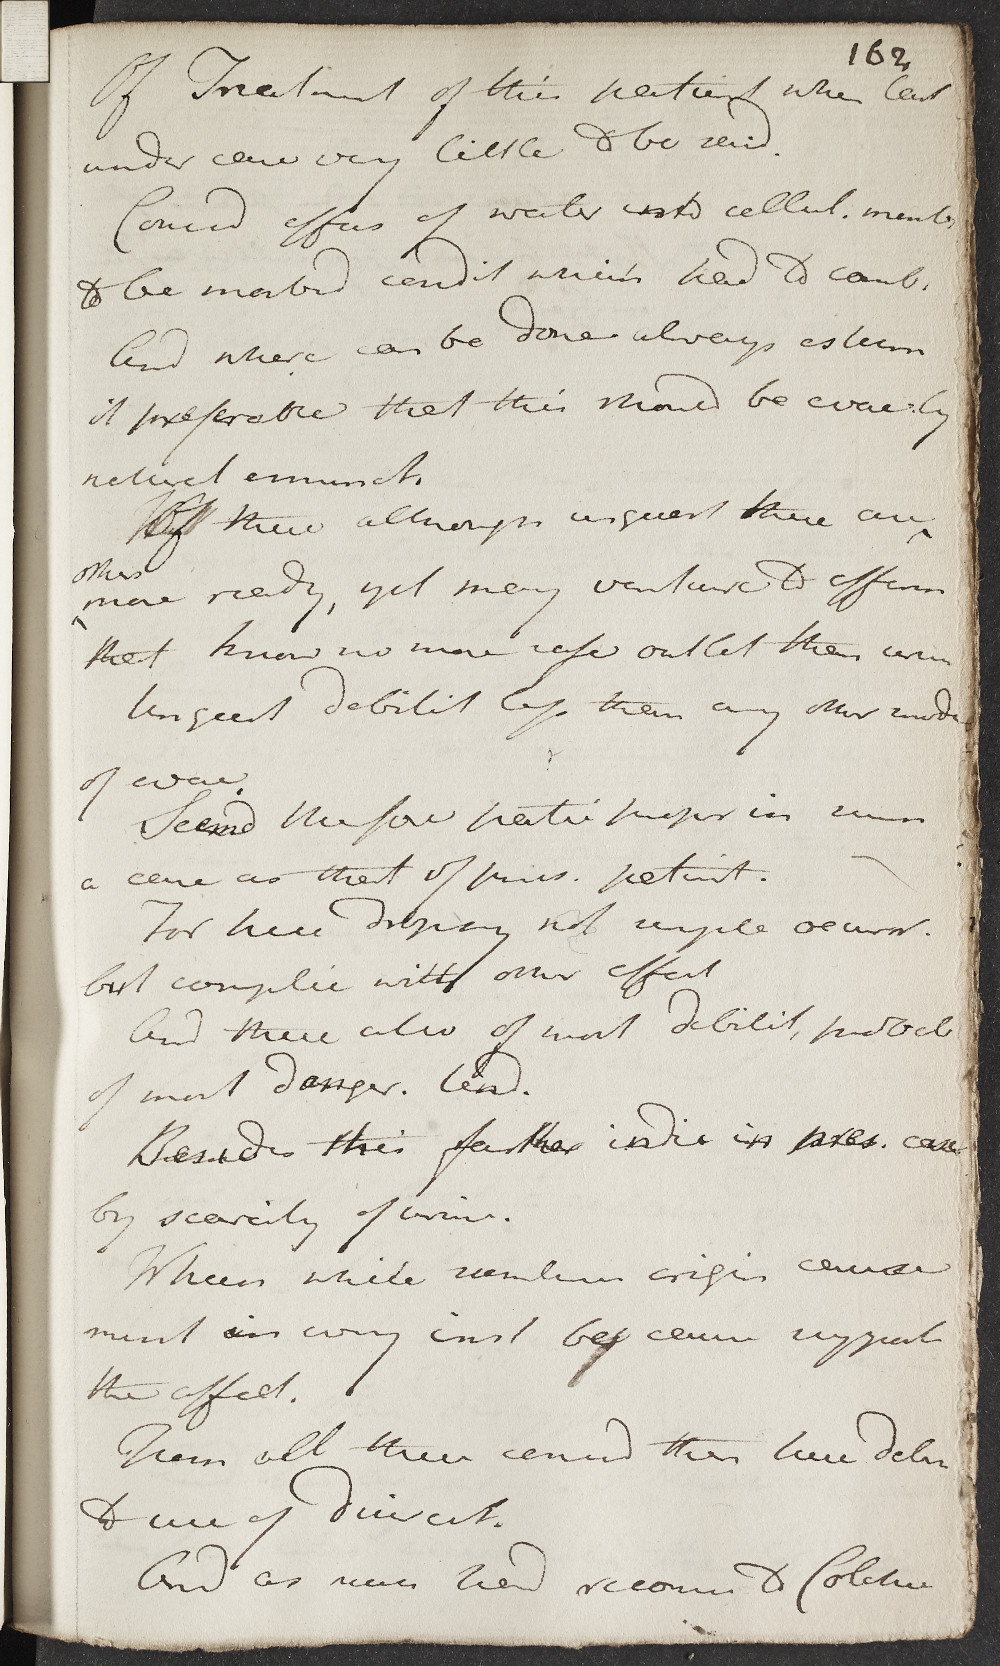 162
Of Treatment of this patient when last
under care very little to be said.
Consid effus of water into cellul. memb.
to be morbid condit which had to comb.
And where can be done always esteem
it preferable that this should be evac. by
natural emunct.
Of these although unquest there are
others
more ready, yet may venture to affirm
that know no more safe outlet than urin
Unquest debilit less than any other mode
of evac.
Seemd therefore partic proper in such
a case as that of pres. patient.
For here dropsy not simple occurr.
but complic with other affect
And these also of most debilit, probab
of most danger. tend.
Besides this farther indic in pres. case
by scarcity of urine.
Which while somtimes origin cause
must in every inst be cause support
the affect.
From all these consid then here deter
to use of diuret.
And as such had recours to Colchic